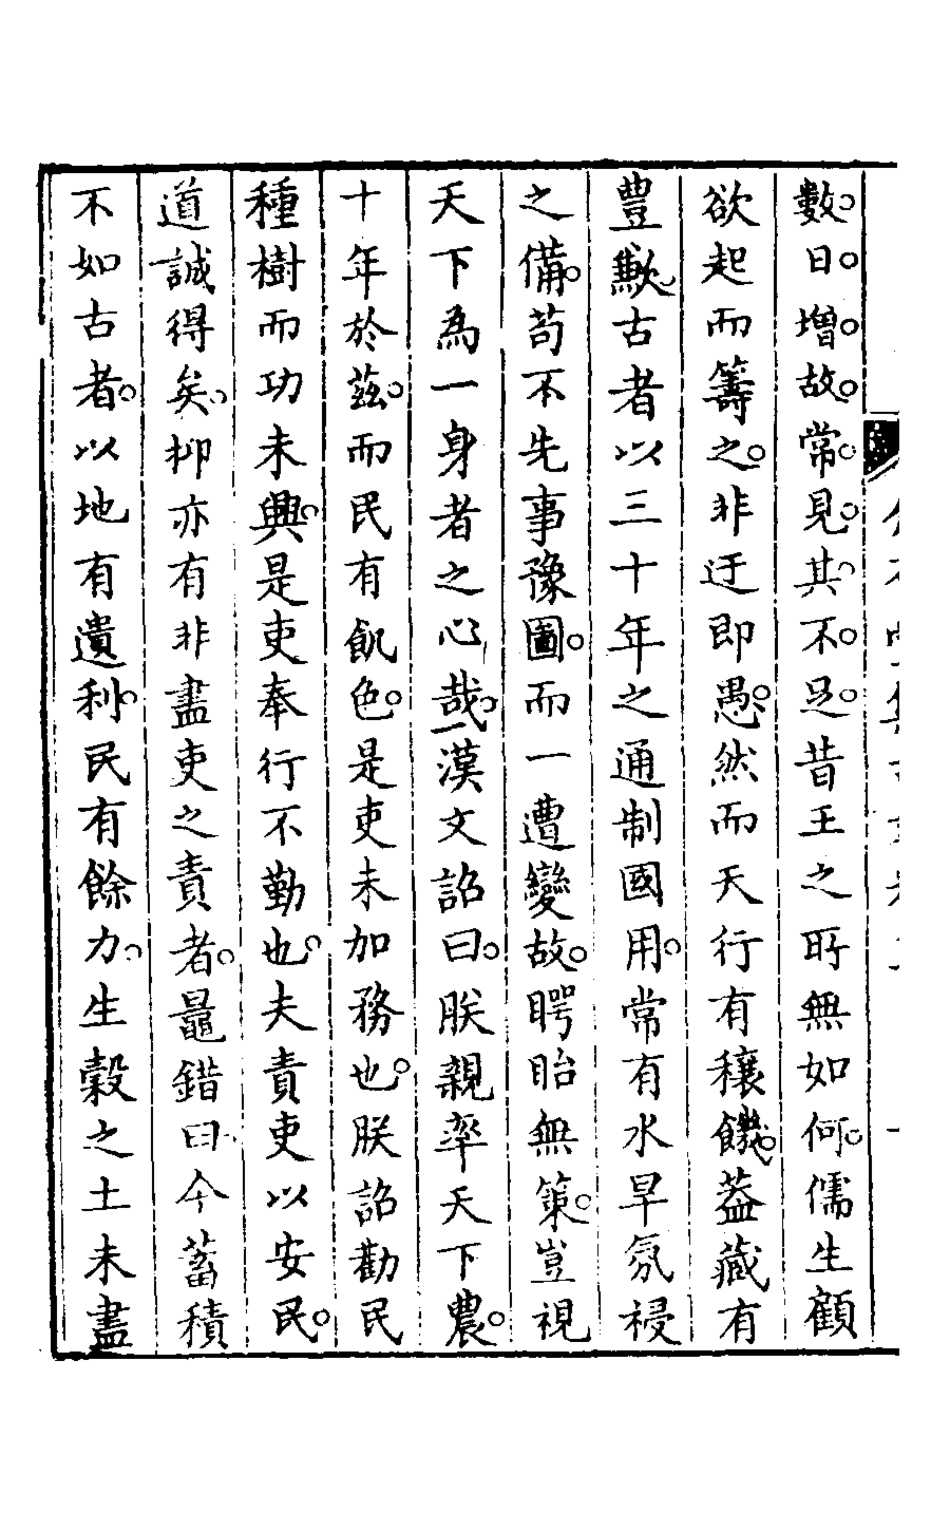 數日增故常見其不足昔王之所無如何儒生顧
欲起而籌之非迂即愚然而天行有穰饑蓋藏有
豐歉古者以三十年之通制國用常有水旱氛祲
之備苟不先事豫圖而一遭變故𥈭眙無策豈視
天下為一身者之心哉漢文詔曰朕親率天下農
十年於茲而民有飢色是吏未加務也朕詔勸民
種樹而功未興是吏奉行不勤也夫責吏以安民
道誠得矣抑亦有非盡吏之責者鼂錯曰今蓄積
不如古者以地有遺利民有餘力生穀之土未盡